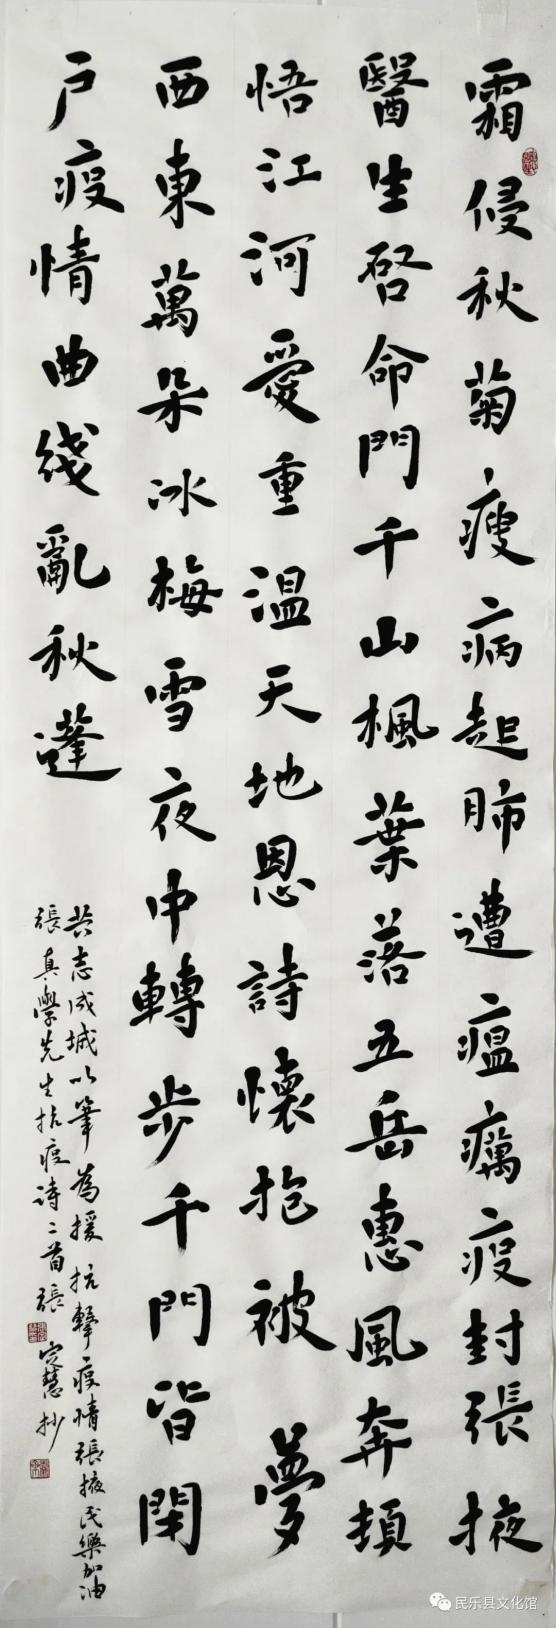 霜侵秋菊瘦病起肺遭瘟癘疫封張掖
醫生啓命門千山楓葉落五岳惠風奔頓
悟江河愛重溫天地恩詩懷抱被夢
西東萬朵冰梅雪夜中轉步千門皆閉
户疫情曲綫亂秋蓬
共志成城以筆為援抗擊疫情張掖民樂加油
張真學先生抗疫詩二首張定慧抄
民乐县文化馆